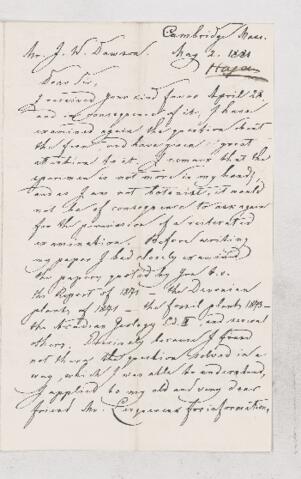 Cambridge Mass.
Mr. J. W. Dawson. May 2. 1881
Hagen
Dear Sir,
I received your kind favor April 28.
and in consequence of it, I have
examined again the question about
the fern and have given great
attention to it. I remark that the
specimen is not more in my hand,
and as I am not botanist, it would
not be of consequence to ask again
for the permission of a reiterated
examination. Before writing
my paper I had closely examined
the papers quoted by you
the Report of 1871 — the Devonian
plants of 1871 — the fossil plants 1873 —
the Acadian Geology Ed. II and several
others. Precisely because I found
not there the question solved in a
way which I was able to understand,
I applied to my old and very dear
friend Mr. Lesquereux for information,